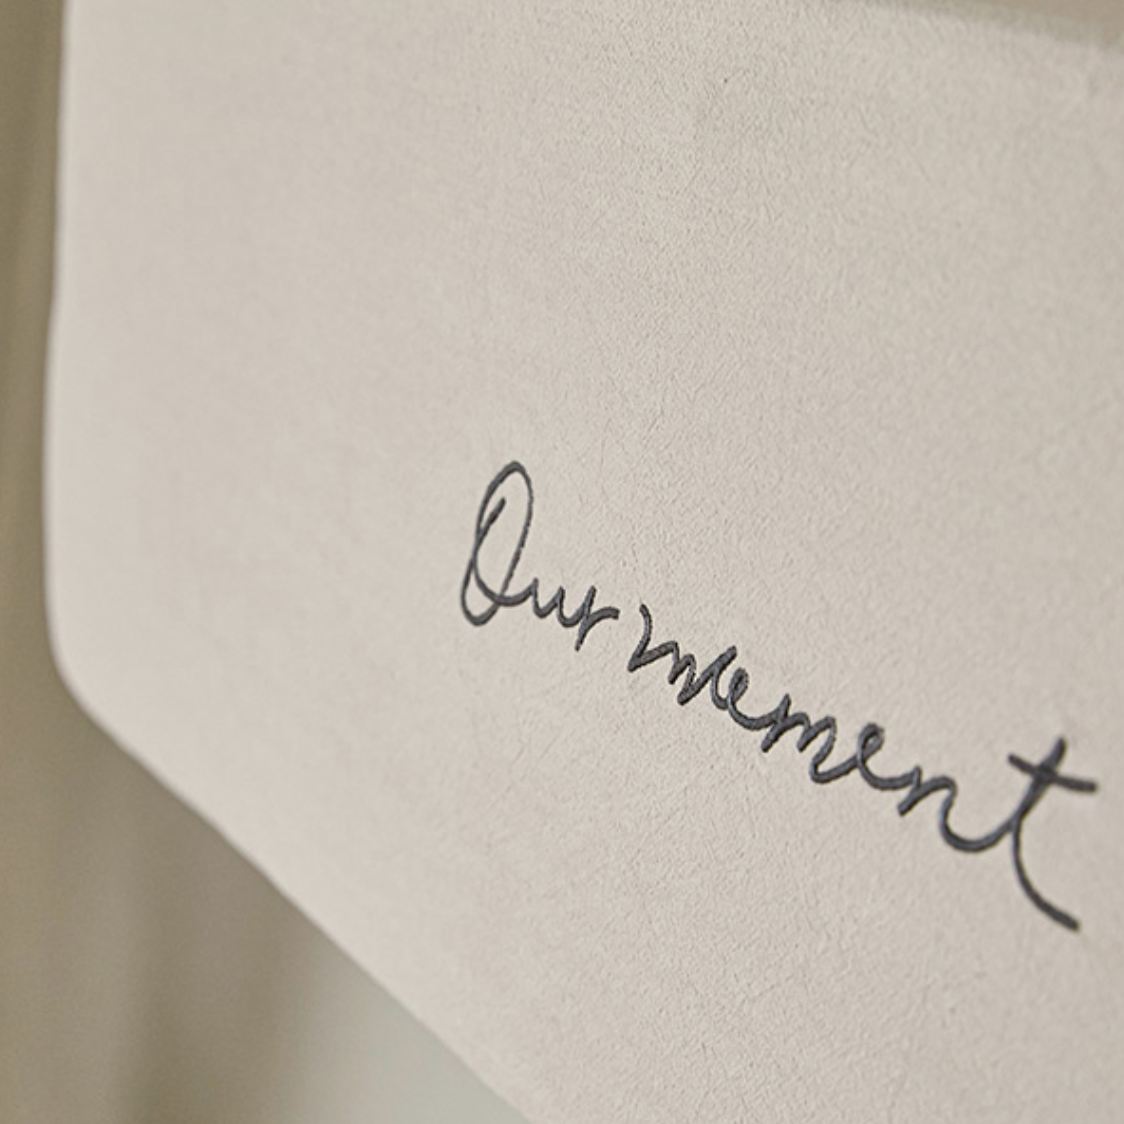 Our moement